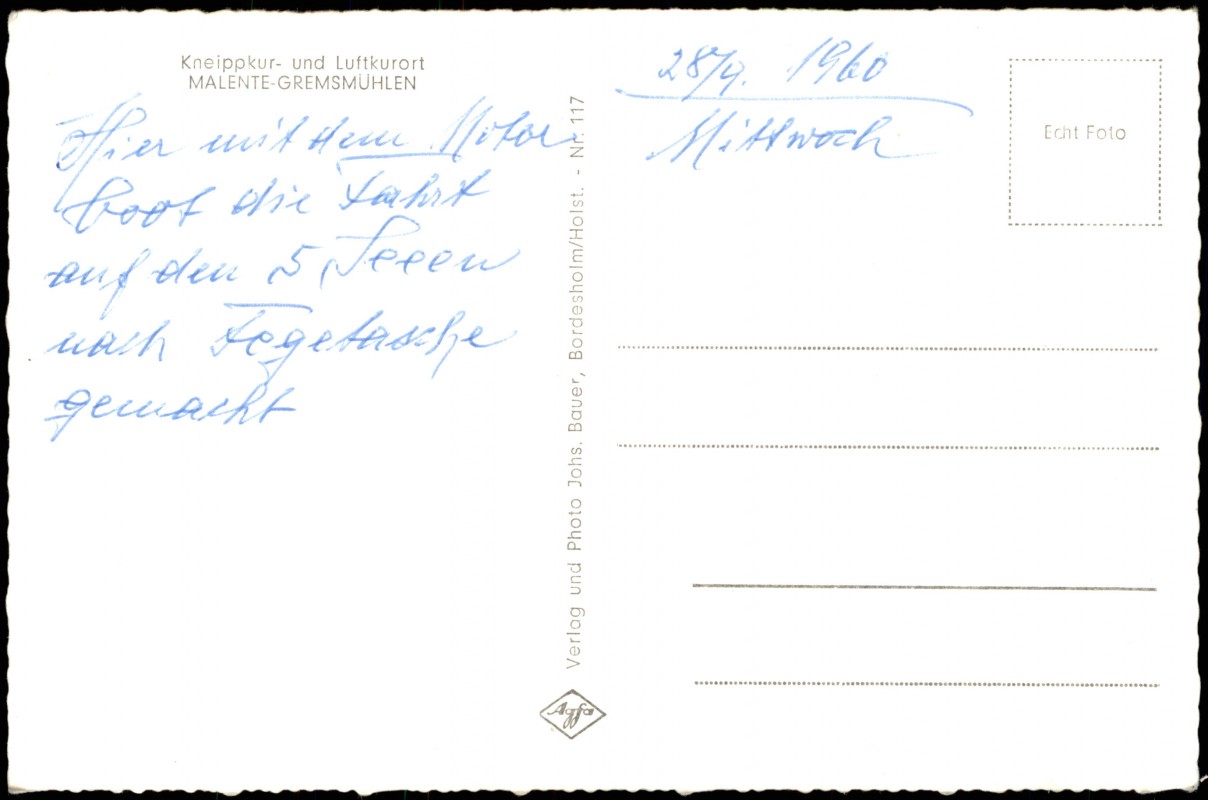 Kneippkur- und Luftkurort
MALENTE-GREMSMÜHLEN
Hier mit dem Motor
boot die Fahrt
auf den 5 Seeen
nach Fegetasche
gemacht
Verlag und Photo Johs. Bauer, Bordesholm/Holst. - Nr. 117
Agfa
28/9. 1960
Mittwoch
Echt Foto